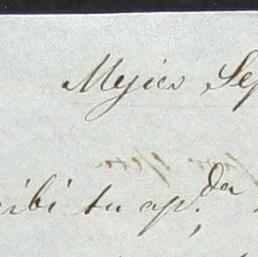 Mejico Sep
cibi tu ap.da